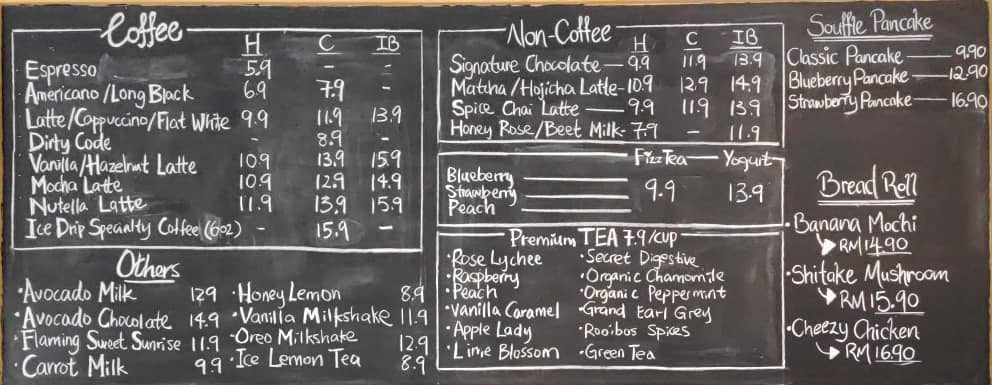 Coffee
H C IB
Espresso 5.9 - -
Americano/Long Black 6.9 7.9 -
Latte/Cappuccino/Flat White 9.9 11.9 13.9
Dirty Code - 8.9 -
Vanilla/Hazelnut Latte 10.9 13.9 15.9
Mocha Latte 10.9 12.9 14.9
Nutella Latte 11.9 13.9 15.9
Ice Drip Specialty Coffee (6oz) - 15.9 -
Others
·Avocado Milk 12.9
·Avocado Chocolate 14.9
·Flaming Sweet Sunrise 11.9
·Carrot Milk 9.9
·Honey Lemon 8.9
·Vanilla Milkshake 11.9
·Oreo Milkshake 12.9
·Ice Lemon Tea 8.9
Non-Coffee
H C IB
Signature Chocolate 9.9 11.9 13.9
Matcha/Hojicha Latte 10.9 12.9 14.9
Spice Chai Latte 9.9 11.9 13.9
Honey Rose/Beet Milk 7.9 - 11.9
Fizz Tea Yogurt
Blueberry
Strawberry 9.9 13.9
Peach
Premium TEA 7.9/cup
·Rose Lychee
·Raspberry
·Peach
·Vanilla Caramel
·Apple Lady
·Lime Blossom
·Secret Digestive
·Organic Chamomile
·Organic Peppermint
·Grand Earl Grey
·Rooibos Spices
·Green Tea
Souffle Pancake
Classic Pancake 9.90
Blueberry Pancake 12.90
Strawberry Pancake 16.90
Bread Roll
·Banana Mochi
RM 14.90
·Shitake Mushroom
RM 15.90
·Cheezy Chicken
RM 16.90